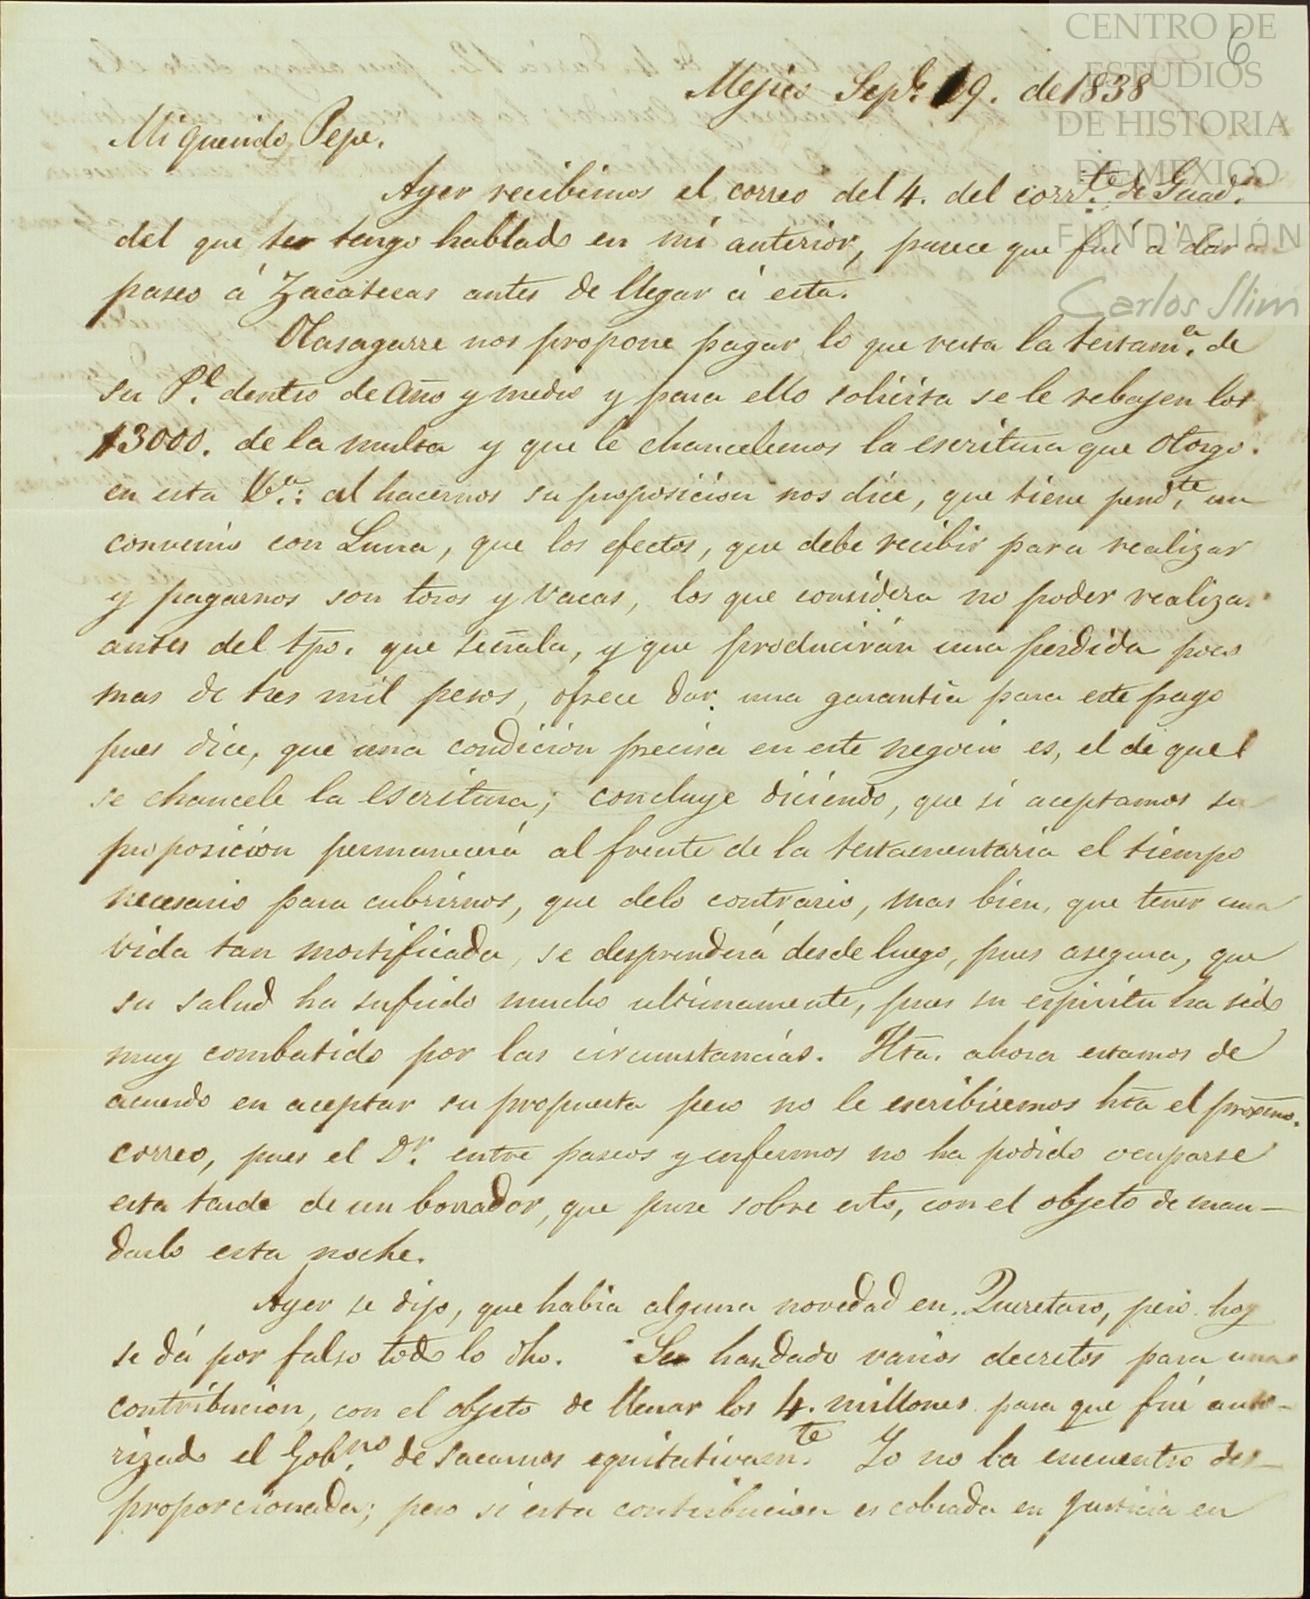 CENTRO DE
ESTUDIOS
DE HISTORIA
DE MÉXICO
FUNDACIÓN
Carlos Slim
6
Mejico Sepe. 19. de 1838
Mi querido Pepe.
Ayer recibimos el correo del 4. del corrte. de Guada.
del que te tengo hablado en mi anterior, parece que fué á dar un
paseo á Zacatecas antes de llegar á esta.
Olasagarre nos propone pagar lo que resta la testama. de
su Pe. dentro de Año y medio y para ello solicita se le rebajen los
$3000. de la multa y que le chancelemos la escritura que Otorgo.
en esta Va.: al hacernos su proposicion nos dice, que tiene pendte. un
convenio con Luna, que los efectos, que debe recibir para realizar
y pagarnos son toros y vacas, los que considera no poder realizar
antes del tpo. que señala, y que producirán una perdida poco
mas de tres mil pesos, ofrece dar una garantia para este pago
pues dice, que una condicion precisa en este negocio es, el de que
se chancele la Escritura; concluye diciendo, que si aceptamos su
proposición permanecerá al frente de la testamentaria el tiempo
necesario para cubrirnos, que delo contrario, mas bien, que tener una
vida tan mortificada, se desprenderá desde luego, pues asegura, que
su salud ha sufrido mucho ultimamente, pues su espiritu ha sido
muy combatido por las circumstancias. Hta. ahora estamos de
acuerdo en aceptar su propuesta pero no le escribiremos hta el proximo.
correo, pues el Dr. entre paseos y enfermos no ha podido ocuparse
esta tarde de un borrador, que puse sobre esto, con el objeto de man-
darlo esta noche.
Ayer se dijo, que habia alguna novedad en Queretaro, pero hoy
se dá por falso todo lo dho. Se han dado varios decretos para una
contribucion, con el objeto de llenar los 4. millones para que fué auto-
rizado el Gobno. de sacarnos equitativamte. Yo no la encuentro des-
proporcionada; pero si esta contribucion es cobrada en justicia en